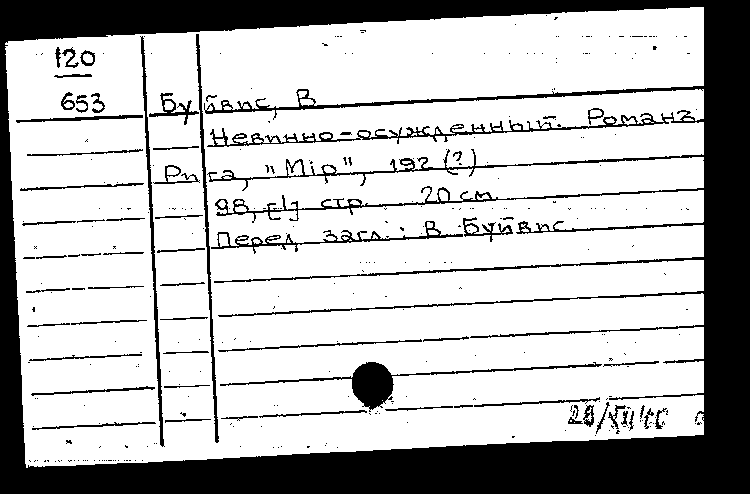 120
653 Буйвис, В
Невинно-осужденный. Романъ
Рига, "Міръ", 192(?)
98, [1] стр. 20 см
Перед загл.: В Буйвис.